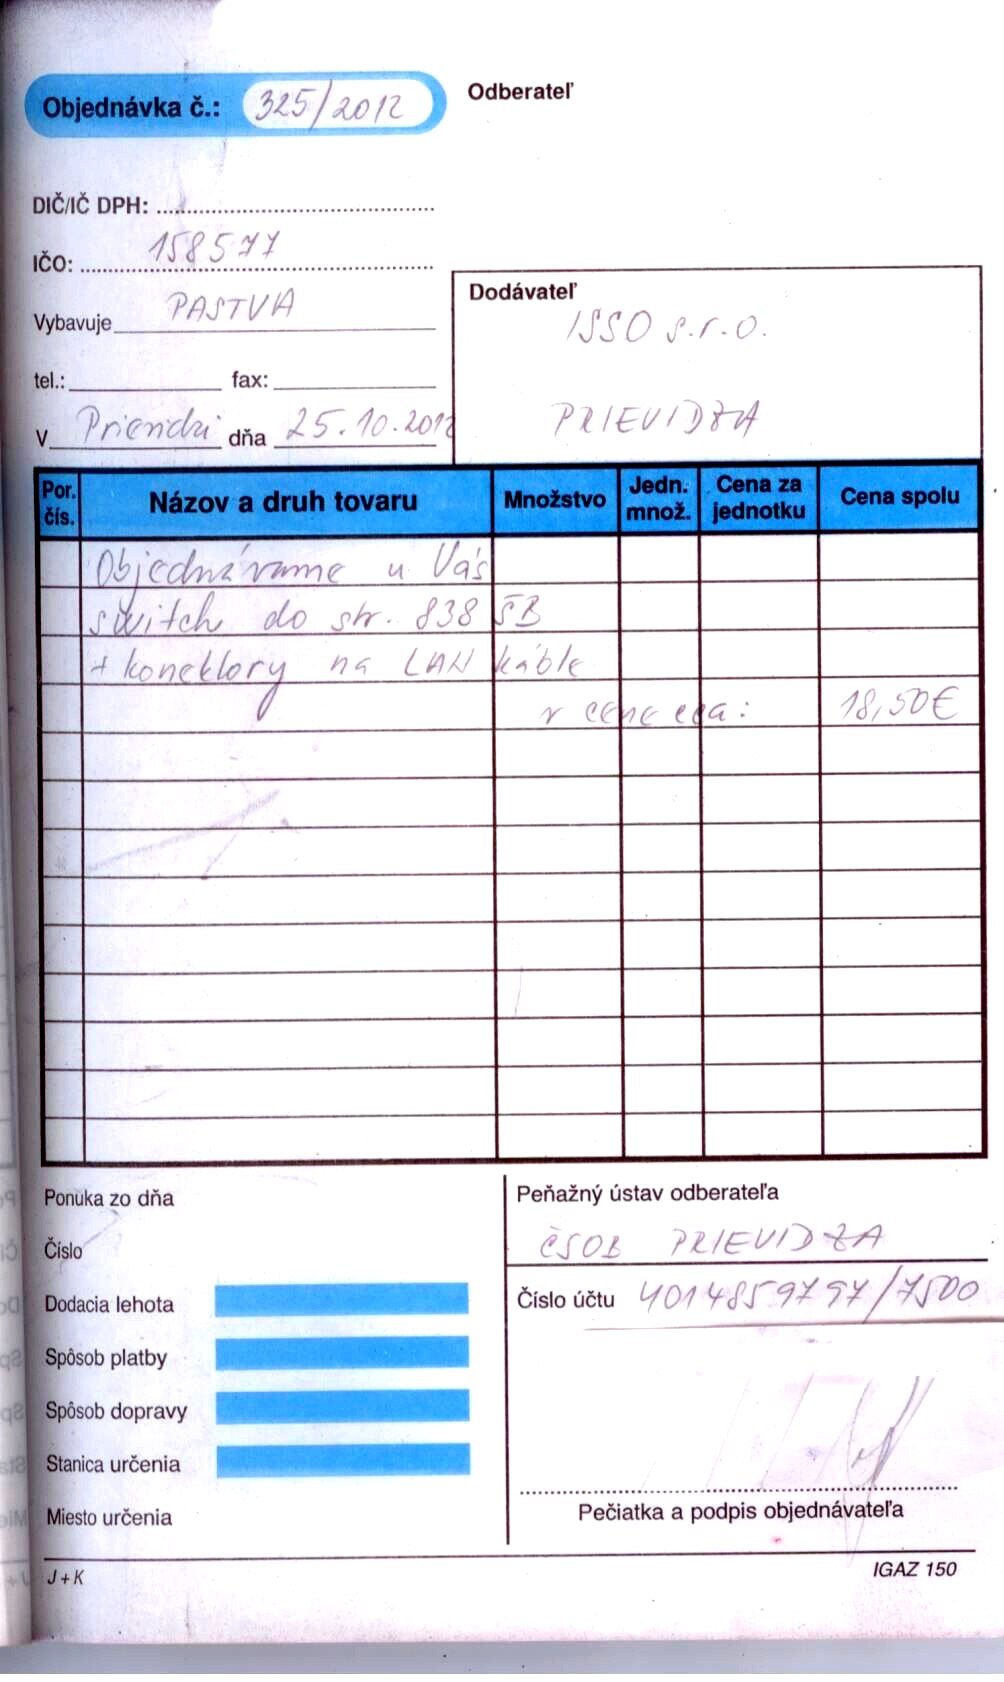 Objednávka č.: 325/2012
Odberateľ
DIČ/IČ DPH:
IČO: 158577
Vybavuje PASTVA
tel.: fax:
V Prievidzi dňa 25.10.2012
Dodávateľ
ISSO s.r.o.
PRIEVIDZA
Por. čís. Názov a druh tovaru Množstvo Jedn. množ. Cena za jednotku Cena spolu
Objednávame u Vás
switch do str. 838 ŠB
+ konektory na LAN káble
v cene cca: 18,50€
Ponuka zo dňa
Číslo
Dodacia lehota
Spôsob platby
Spôsob dopravy
Stanica určenia
Miesto určenia
Peňažný ústav odberateľa
ČSOB PRIEVIDZA
Číslo účtu 4014859797/7500
Pečiatka a podpis objednávateľa
J + K
IGAZ 150